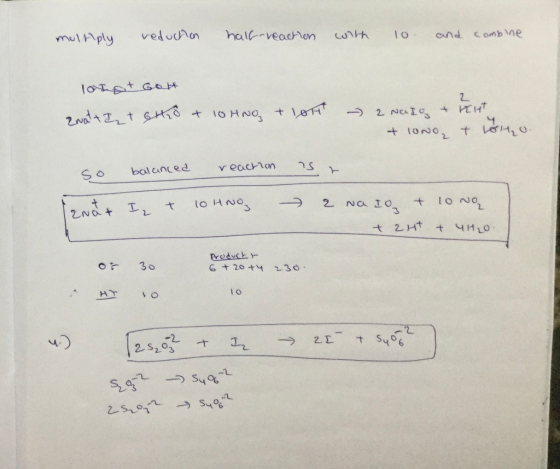 multiply reduction half-reaction with 10 and combine
2Na⁺ + I₂ + 6H₂O + 10HNO₃ + 10H⁺ → 2NaIO₃ + 2H⁺
+ 10NO₂ + 4H₂O
So balanced reaction is
2Na⁺ + I₂ + 10HNO₃ → 2NaIO₃ + 10NO₂
+ 2H⁺ + 4H₂O
Product
O = 30 6+20+4 = 30.
∴ H⁺ 10 10
4.) 2S₂O₃⁻² + I₂ → 2I⁻ + S₄O₆⁻²
S₂O₃⁻² → S₄O₆⁻²
2S₂O₃⁻² → S₄O₆⁻²